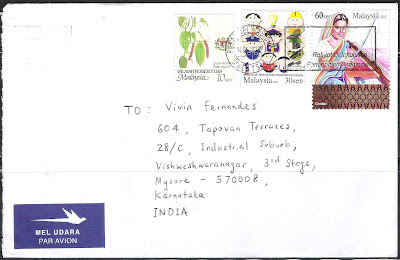 WILAYAH PERSEKUTUAN
Malaysia
10 sen
Malaysia
30sen
60sen
Malaysia
TO: Vivin Fernandes
604, Tapovan Terraces,
28/C, Industrial Suburb,
Vishweshwaranagar, 3rd Stage,
Mysore - 570008,
Karnataka
INDIA
MEL UDARA
PAR AVION